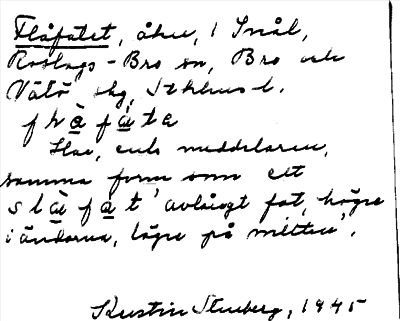 Flåfatet, åker, i Snål,
Roslags-Bro sn, Bro och
Vätö skg, Stkhms l.
f l à f à t e
Har, enl. meddelaren,
samma form som ett
s l à f à t 'avlångt fat, högre
i ändarna, lägre på mitten'.
Kerstin Stenberg, 1945